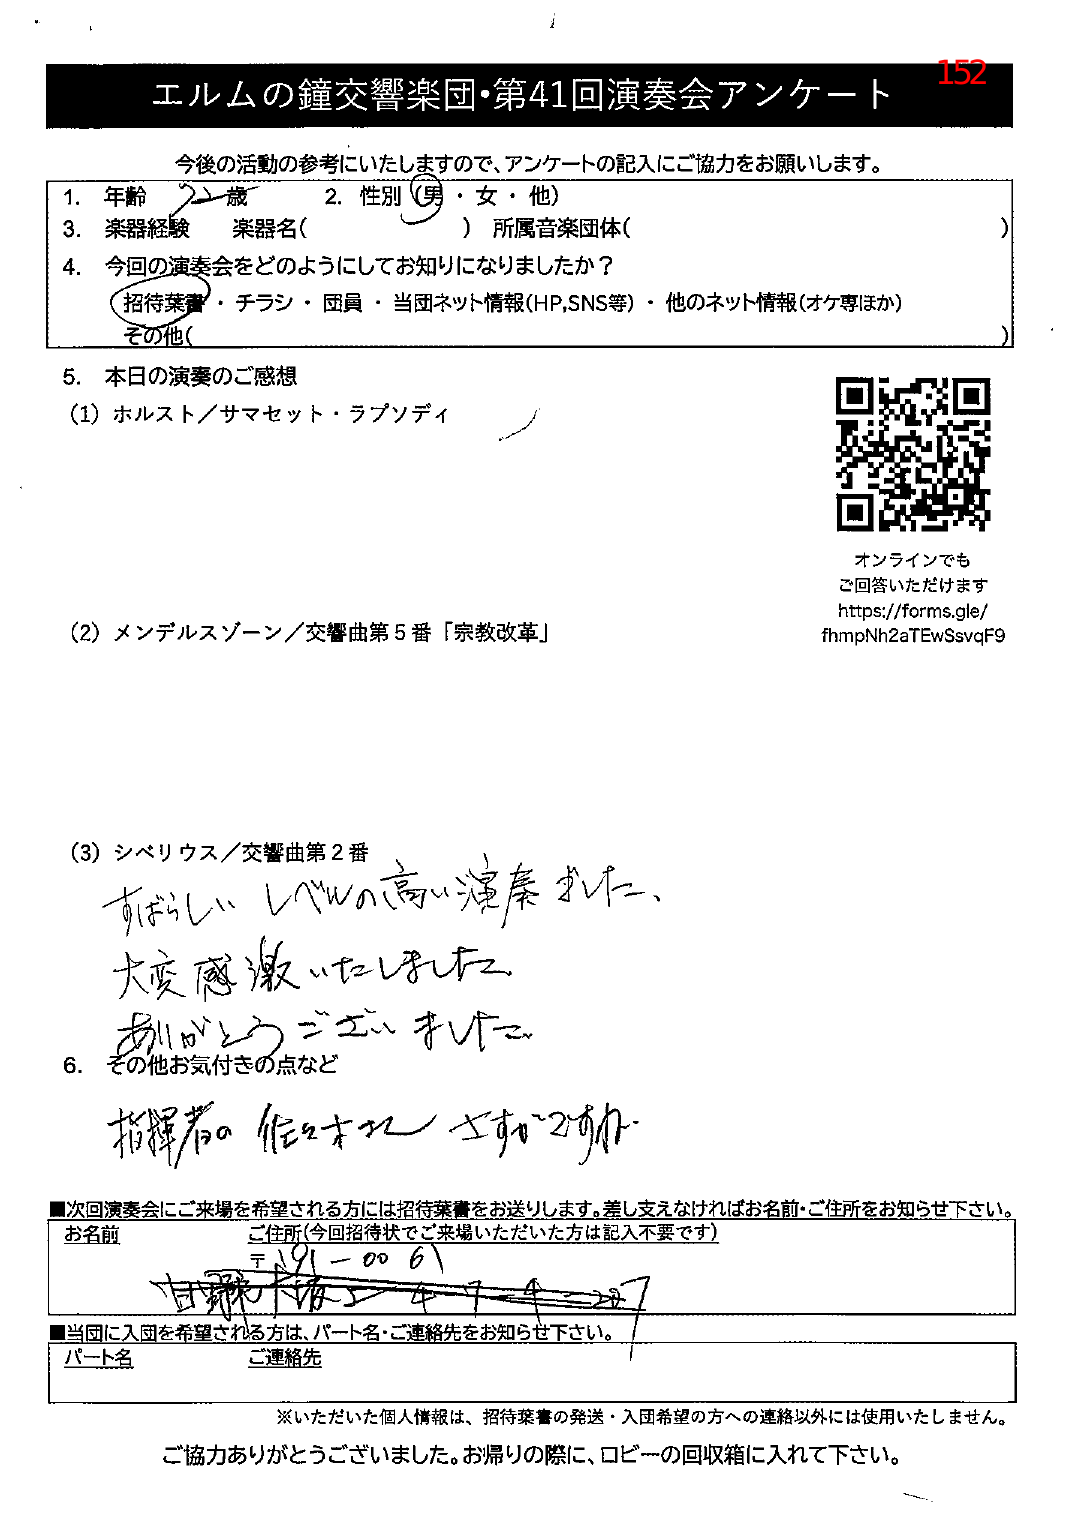 152
エルムの鐘交響楽団・第41回演奏会アンケート
今後の活動の参考にいたしますので、アンケートの記入にご協力をお願いします。
1. 年齢 72歳 2. 性別(男・女・他)
3. 楽器経験 楽器名( ) 所属音楽団体( )
4. 今回の演奏会をどのようにしてお知りになりましたか？
招待葉書・チラシ・団員・当団ネット情報(HP,SNS等)・他のネット情報(オケ専ほか)
その他( )
5. 本日の演奏のご感想
(1) ホルスト／サマセット・ラプソディ
オンラインでも
ご回答いただけます
https://forms.gle/
fhmpNh2aTEwSsvqF9
(2) メンデルスゾーン／交響曲第５番「宗教改革」
(3) シベリウス／交響曲第２番
すばらしい レベルの高い演奏ました、
大変感激いたしました
ありがとうございました。
6. その他お気付きの点など
指揮者の 佐々木さん さすがですね。
■次回演奏会にご来場を希望される方には招待葉書をお送りします。差し支えなければお名前・ご住所をお知らせ下さい。
お名前 ご住所(今回招待状でご来場いただいた方は記入不要です)
〒191-0061
■当団に入団を希望される方は、パート名・ご連絡先をお知らせ下さい。
パート名 ご連絡先
※いただいた個人情報は、招待葉書の発送・入団希望の方への連絡以外には使用いたしません。
ご協力ありがとうございました。お帰りの際に、ロビーの回収箱に入れて下さい。